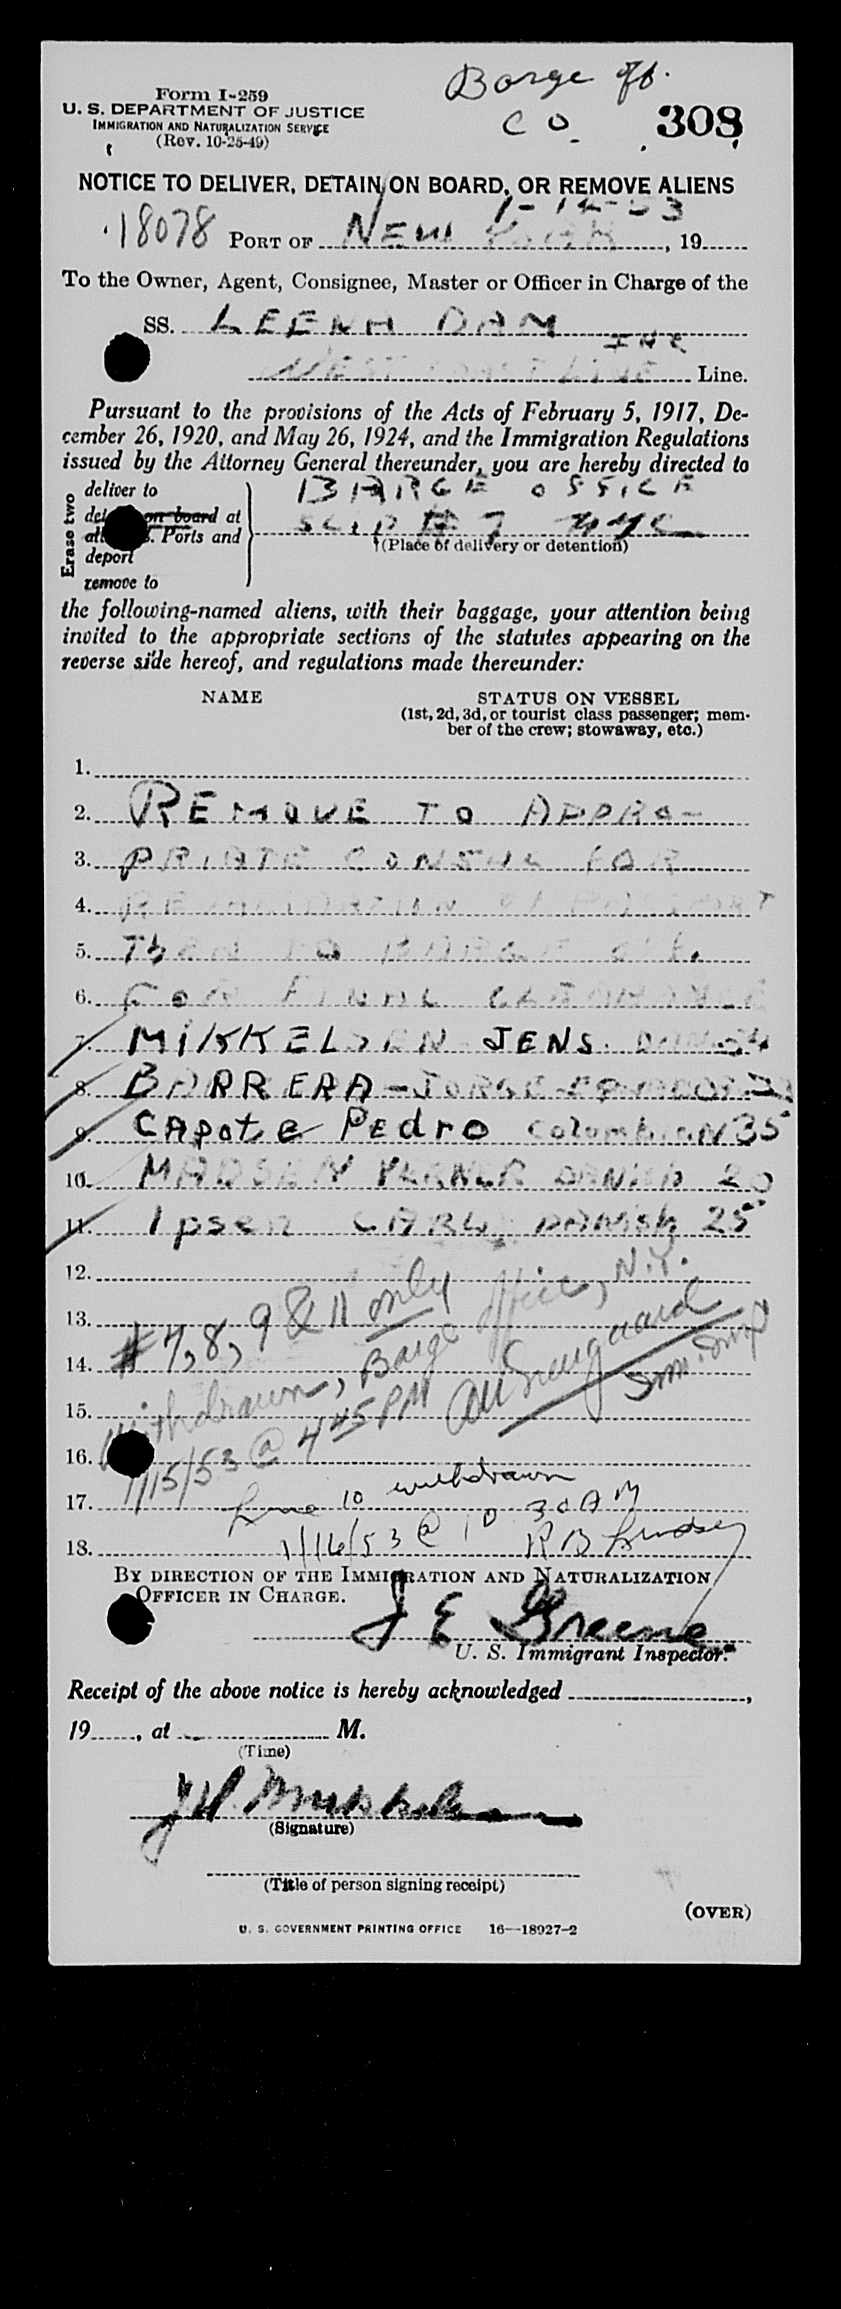 Barge Off.
Form I-259
U. S. DEPARTMENT OF JUSTICE
IMMIGRATION AND NATURALIZATION SERVICE
(Rev. 10-25-49)
C O
308
NOTICE TO DELIVER, DETAIN ON BOARD, OR REMOVE ALIENS
18078 PORT OF NEW YORK, 19
To the Owner, Agent, Consignee, Master or Officer in Charge of the
SS. LEENA DAM
INC
WEST COAST LINE Line.
Pursuant to the provisions of the Acts of February 5, 1917, De-
cember 26, 1920, and May 26, 1924, and the Immigration Regulations
issued by the Attorney General thereunder, you are hereby directed to
Erase two
deliver to
on board at
Ports and
deport
remove to
BARGE OFFICE
SLIP # 7 NYC
(Place of delivery or detention)
the following-named aliens, with their baggage, your attention being
invited to the appropriate sections of the statutes appearing on the
reverse side hereof, and regulations made thereunder:
NAME
STATUS ON VESSEL
(1st, 2d, 3d, or tourist class passenger; mem-
ber of the crew; stowaway, etc.)
1.
2. REMOVE TO APPRO-
3. PRIATE CONSUL FOR
4.
5. THEN TO BARGE OFF.
6. FOR FINAL
7. MIKKELSEN JENS. 54
8. BARRERA - JORGE
9. CAPOTE PEDRO COLOMBIAN 35
10. MADSEN VERNER DANISH 20
11. IPSEN CARL DANISH 25
12.
13.
14.
15.
16.
17.
18.
#7, 8, 9 & 11 only
withdrawn, Barge Office, N.Y.
1/15/53 @ 445 PM
Line 10 withdrawn
1/16/53 @ 10 30 AM
R B Lindsey
BY DIRECTION OF THE IMMIGRATION AND NATURALIZATION
OFFICER IN CHARGE.
J E Greene
U. S. Immigrant Inspector.
Receipt of the above notice is hereby acknowledged ,
19 , at M.
(Time)
(Signature)
(Title of person signing receipt)
(OVER)
U. S. GOVERNMENT PRINTING OFFICE 16—18927-2